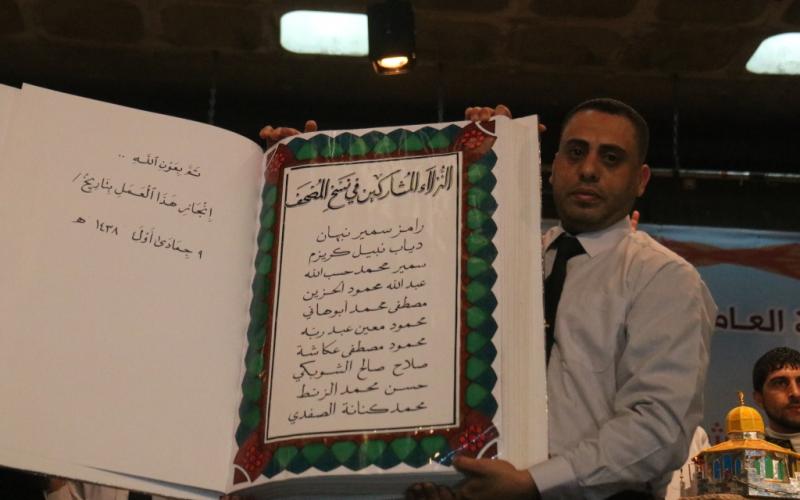 تمّ بعون الله ..
إنجاز هذا العمل بتاريخ /
٩ جمادى أول ١٤٣٨ هـ
النزلاء المشاركين في نسخ المصحف
رامز سمير نبهان
دياب نبيل كريزم
سمير محمد حسب الله
عبدالله محمود الحزين
مصطفى محمد أبوهاني
محمود معين عبد ربه
محمود مصطفى عكاشة
صلاح صالح الشوبكي
حسن محمد الزنط
محمد كنانة الصفدي
العام